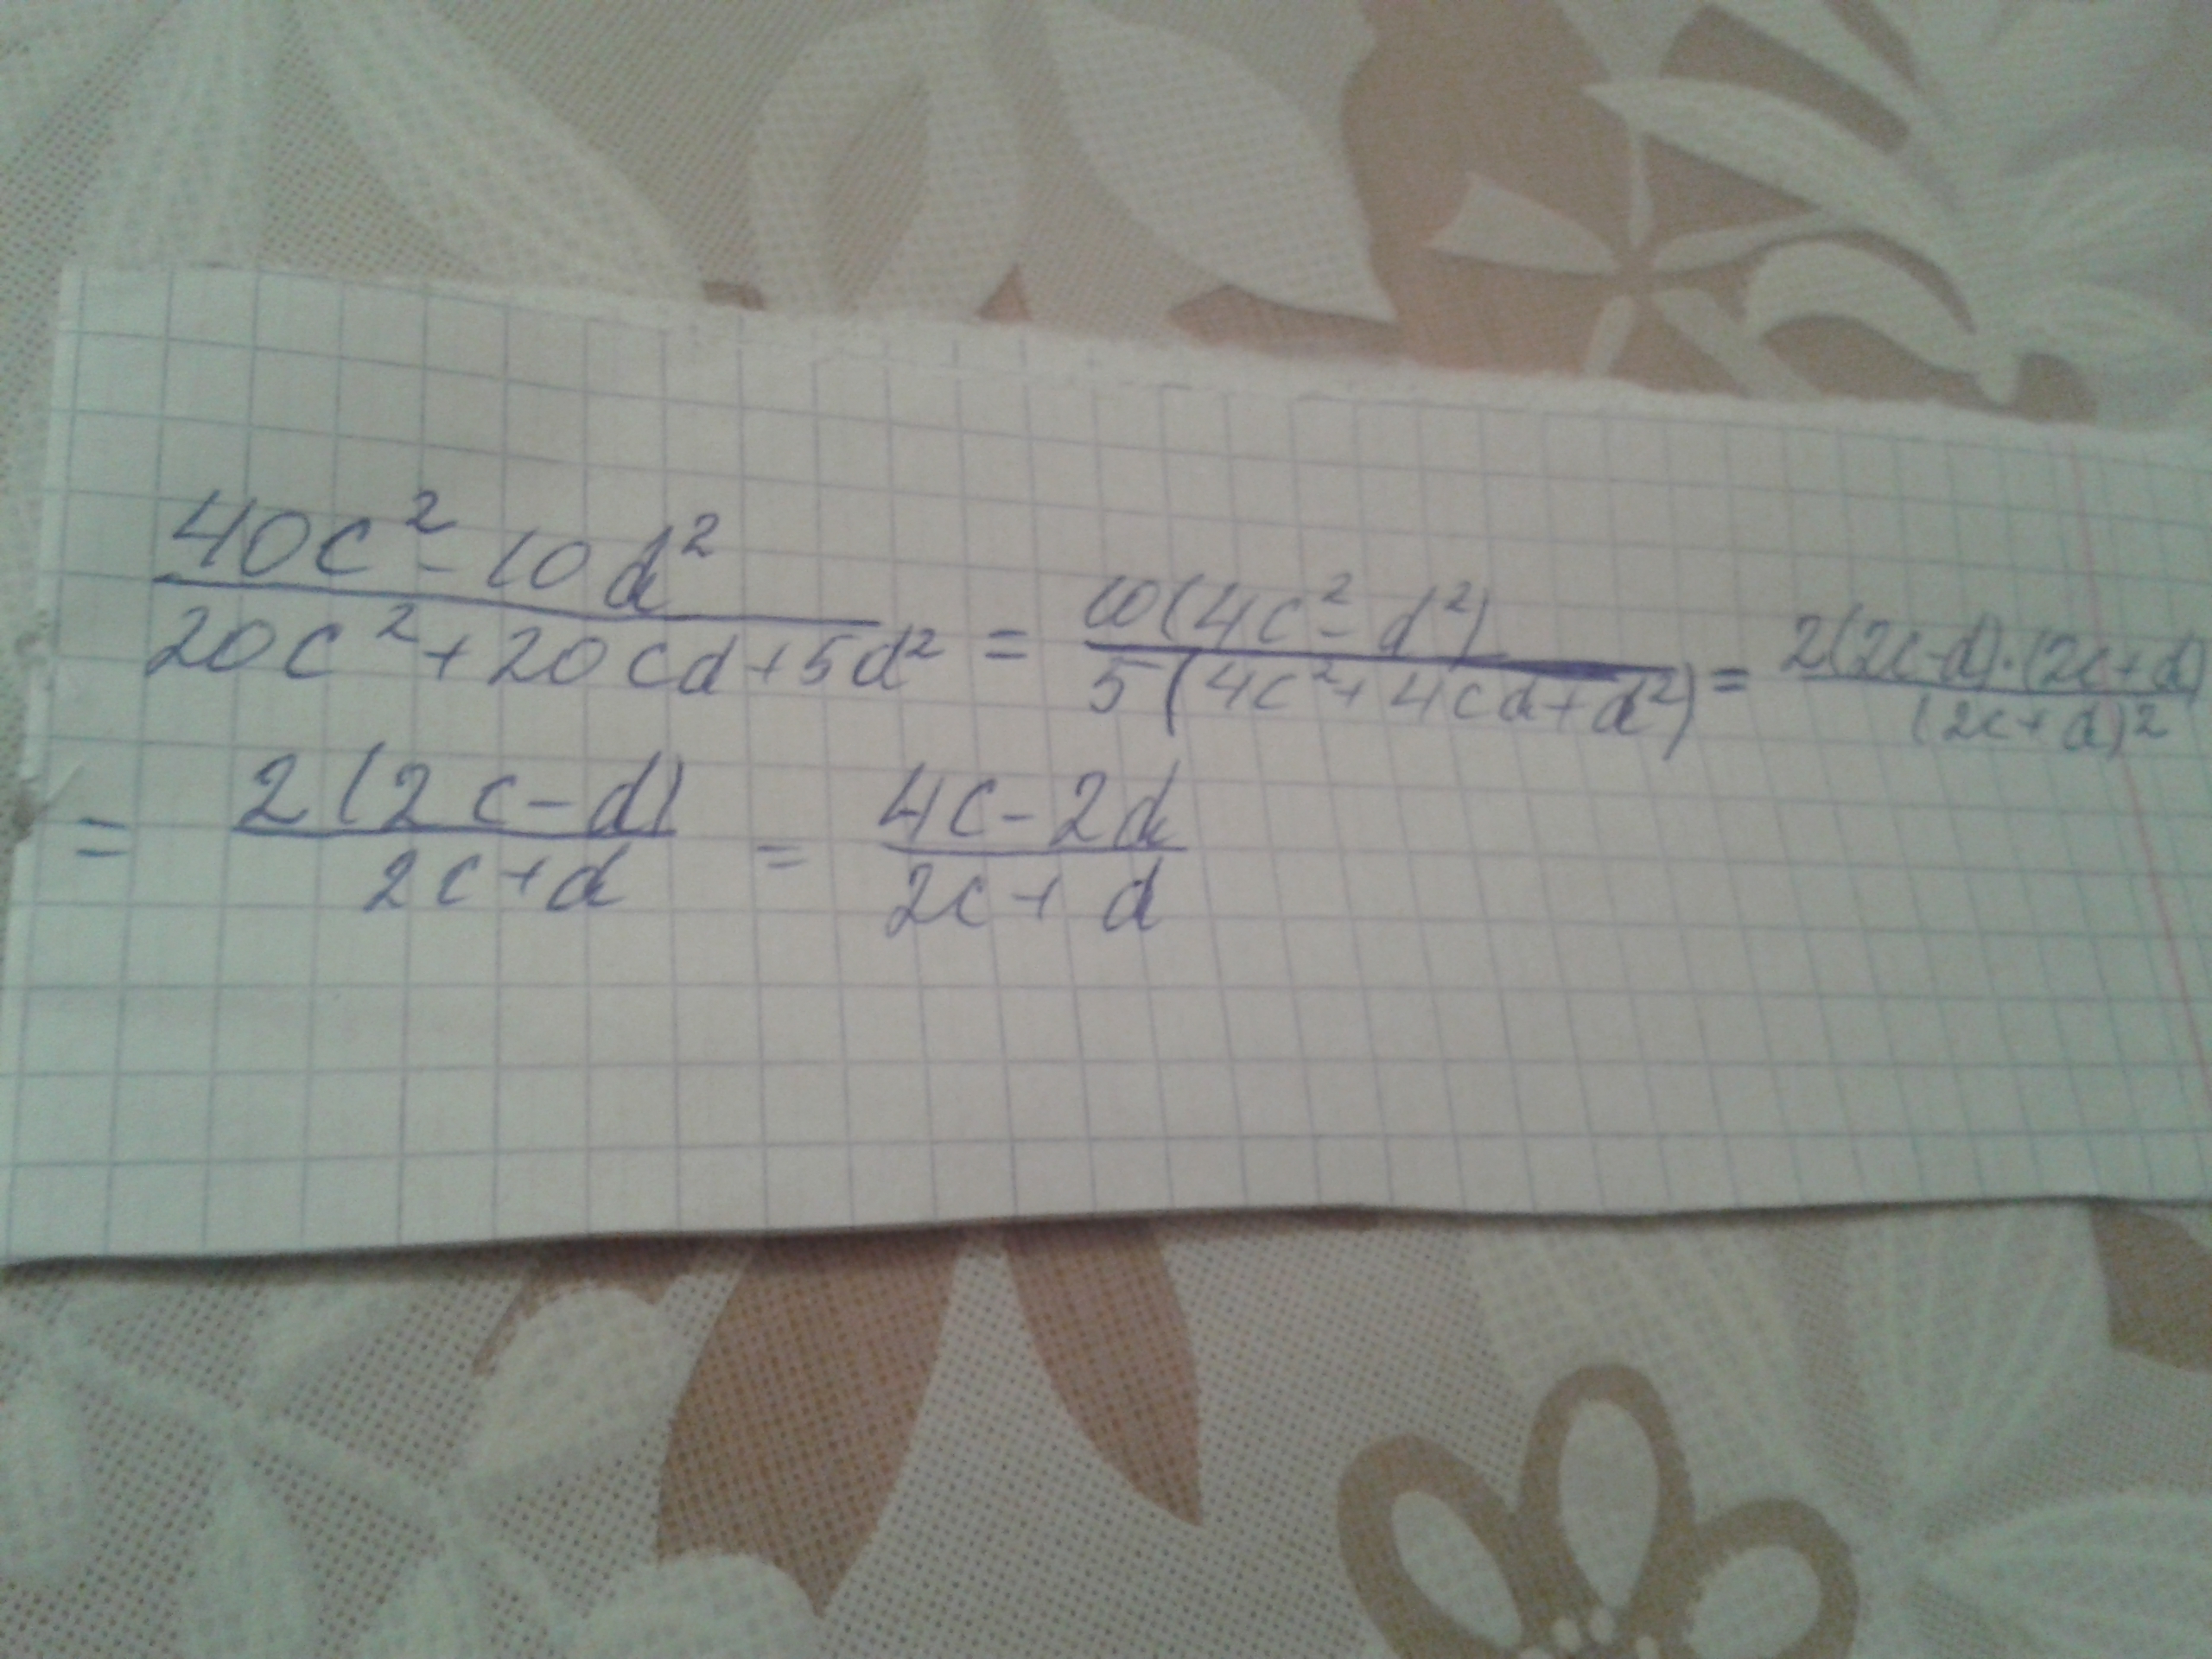 (40c² - 10d²)/(20c² + 20cd + 5d²) = 10(4c² - d²)/5(4c² + 4cd + d²) = 2(2c-d)·(2c+d)/(2c+d)²
= 2(2c-d)/(2c+d) = (4c-2d)/(2c+d)